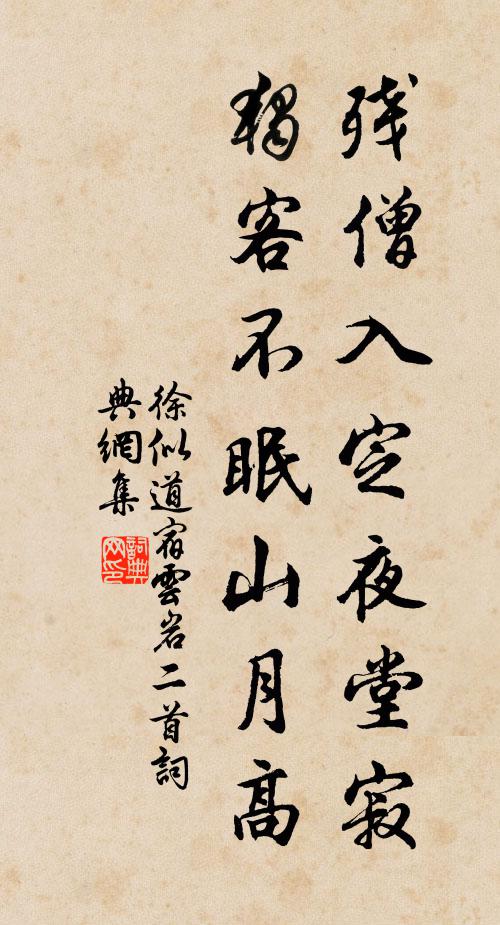 残僧入定夜堂寂
独客不眠山月高
徐似道宿雲岩二首詞
典網集
詞典网印